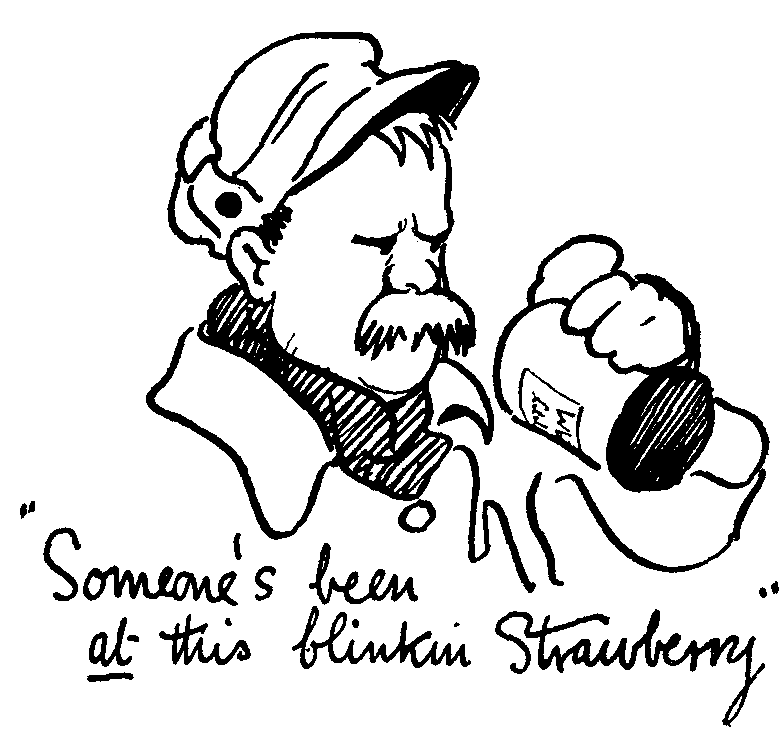 "Someone's been
at this blinkin Strawberry"